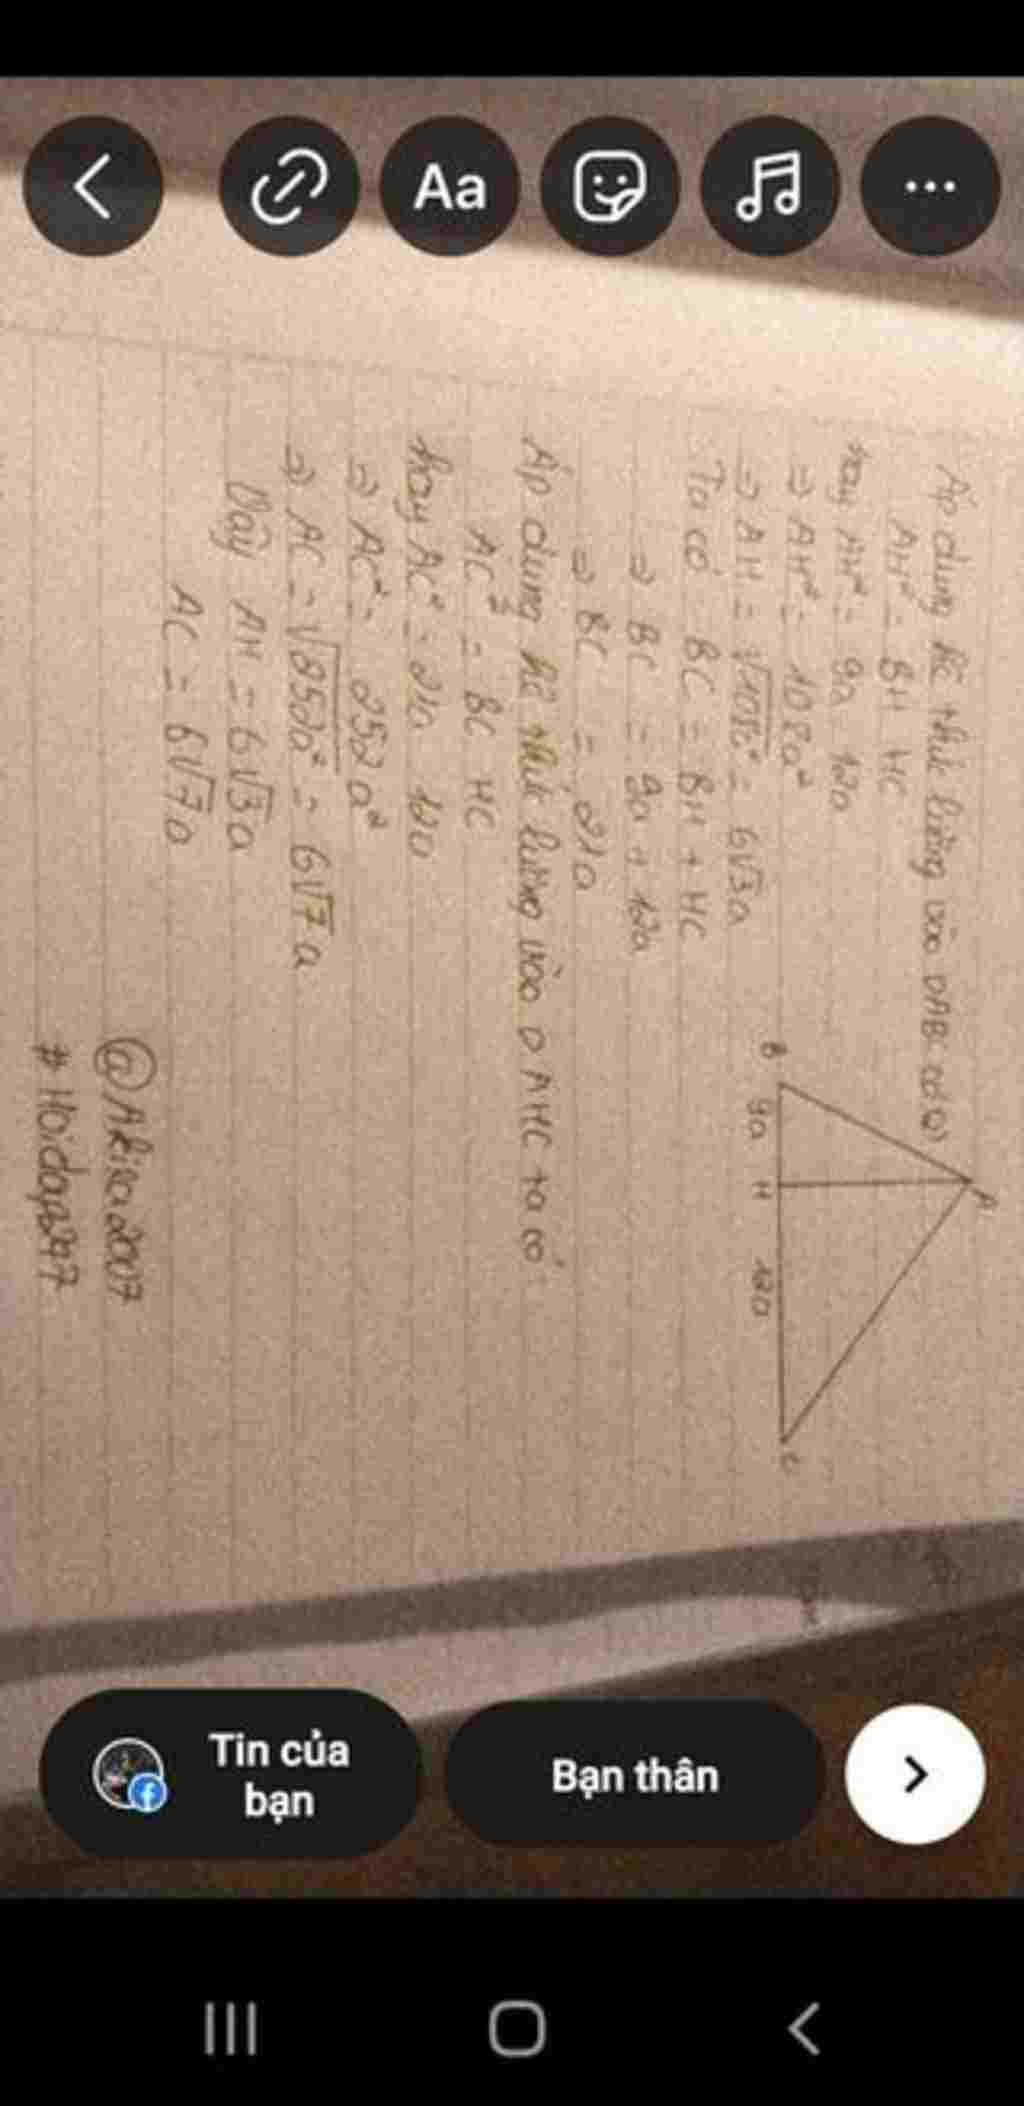 Aa
Áp dụng hệ thức lượng vào ΔABC có
AH² = BH HC
hay AH² = 9a 12a
⇒ AH² = 108a²
⇒ AH = √108² = 6√3a
Ta có BC = BH + HC
⇒ BC = 9a + 12a
⇒ BC = 21a
Áp dụng hệ thức lượng vào Δ AHC ta có
AC² = BC HC
hay AC² = 21a 12a
⇒ AC² = 252a²
⇒ AC = √252a² = 6√7a
Vậy AH = 6√3a
AC = 6√7a
A
B 9a H 12a C
@Akisa2007
#Hoidap247
Tin của
bạn
Bạn thân